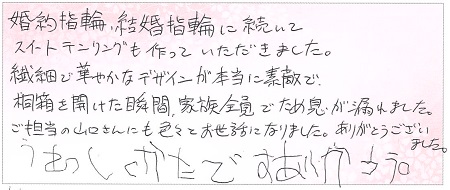 婚約指輪、結婚指輪に続いて
スイートテンリングも作っていただきました。
繊細で華やかなデザインが本当に素敵で、
桐箱を開けた瞬間、家族全員でため息が漏れました。
ご担当の山口さんにも色々とお世話になりました。ありがとうござい
ました。